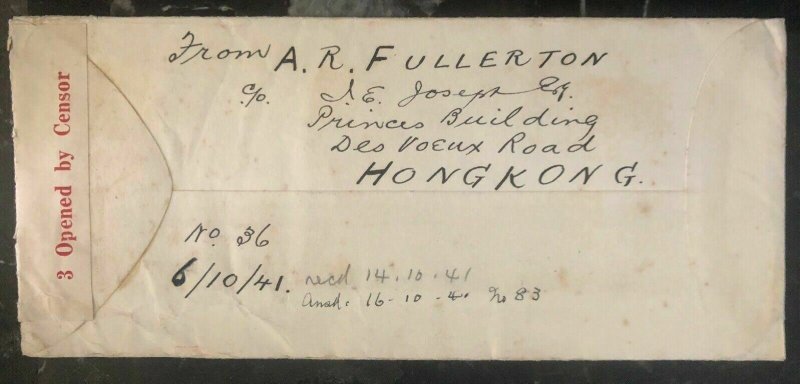 From A. R. FULLERTON
c/o. J. E. Joseph Esq.
Princes Building
Des Voeux Road
HONGKONG.
3 Opened by Censor
No. 36
6/10/41. recd. 14.10.41
Ansd. 16-10-41 No 83